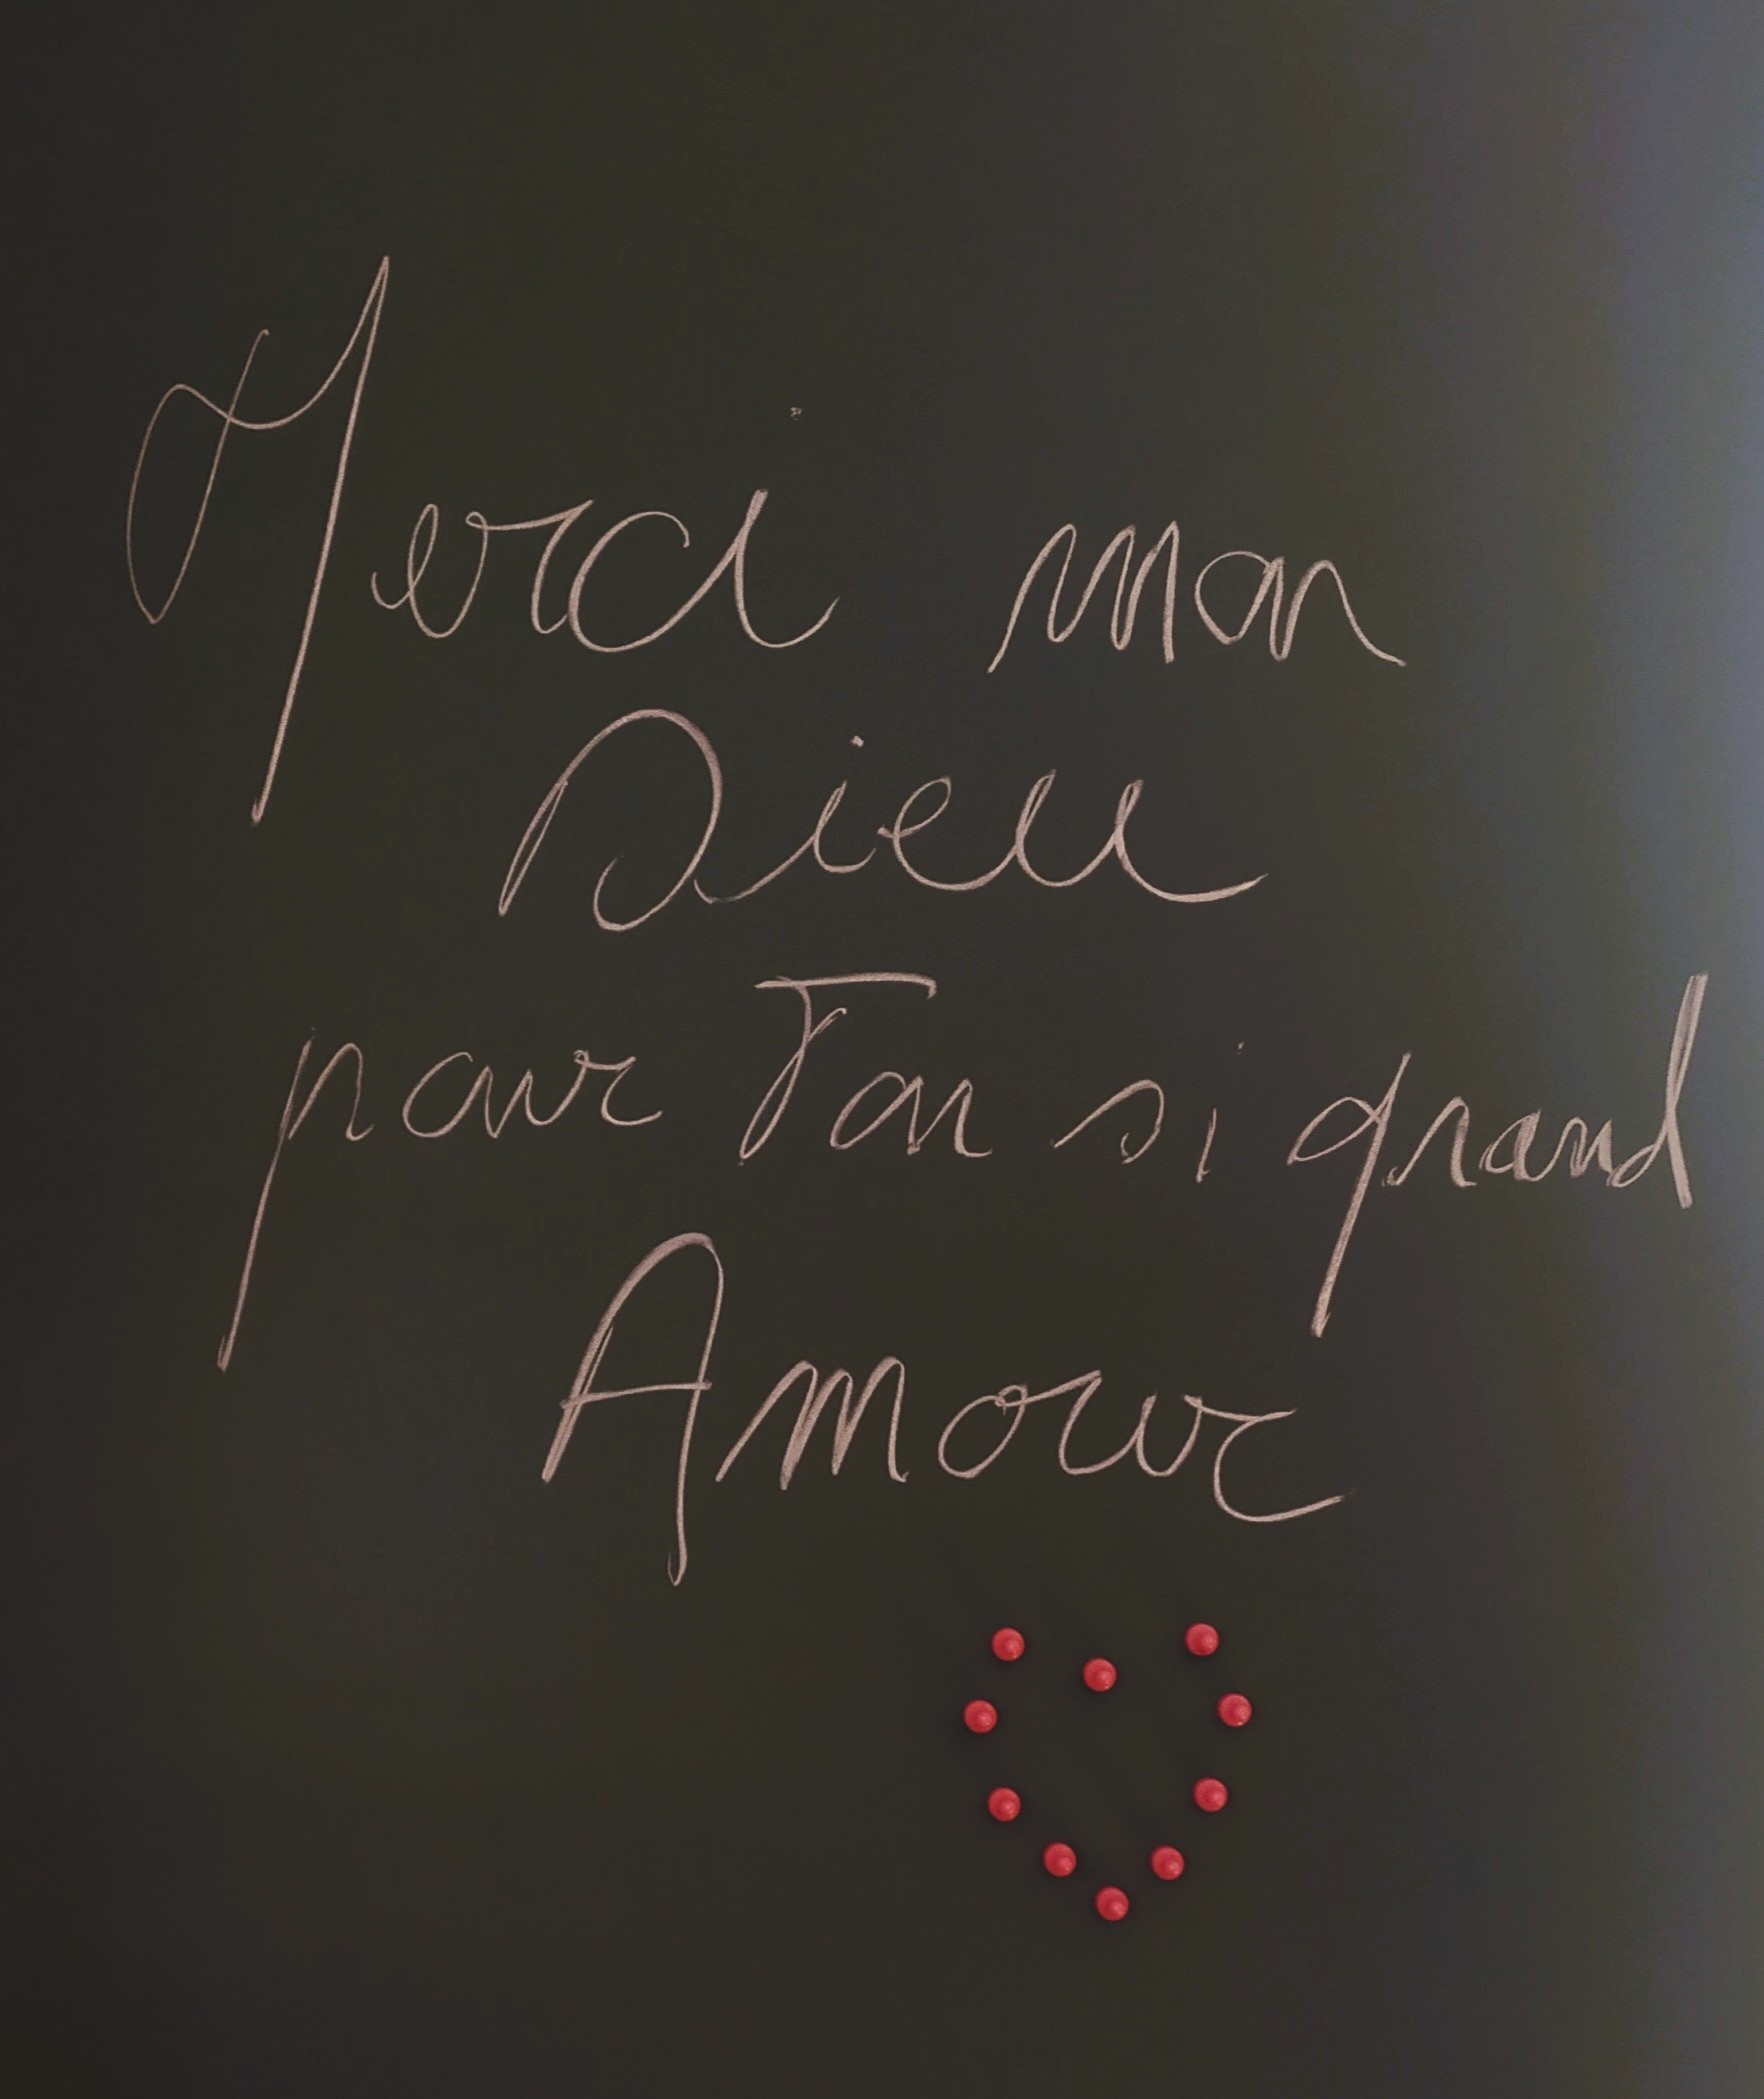 Merci mon
Dieu
pour Ton si grand
Amour